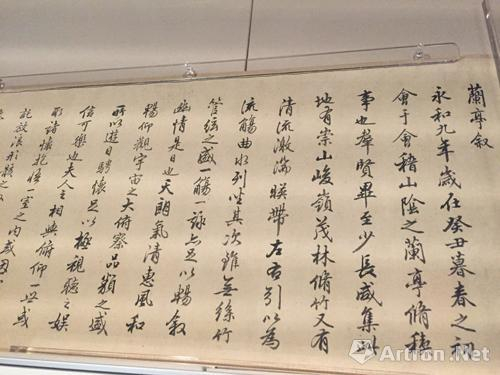 蘭亭叙
永和九年歲在癸丑暮春之初
會于會稽山陰之蘭亭脩稧
事也羣賢畢至少長咸集此
地有崇山峻嶺茂林脩竹又有
清流激湍暎帶左右引以為
流觴曲水列坐其次雖無絲竹
管絃之盛一觴一詠亦足以暢叙
幽情是日也天朗氣清惠風和
暢仰觀宇宙之大俯察品類之盛
所以遊目騁懷足以極視聽之娛
信可樂也夫人之相與俯仰一世或
取諸懷抱悟一室之内或因
託放浪形骸之
Artron.Net